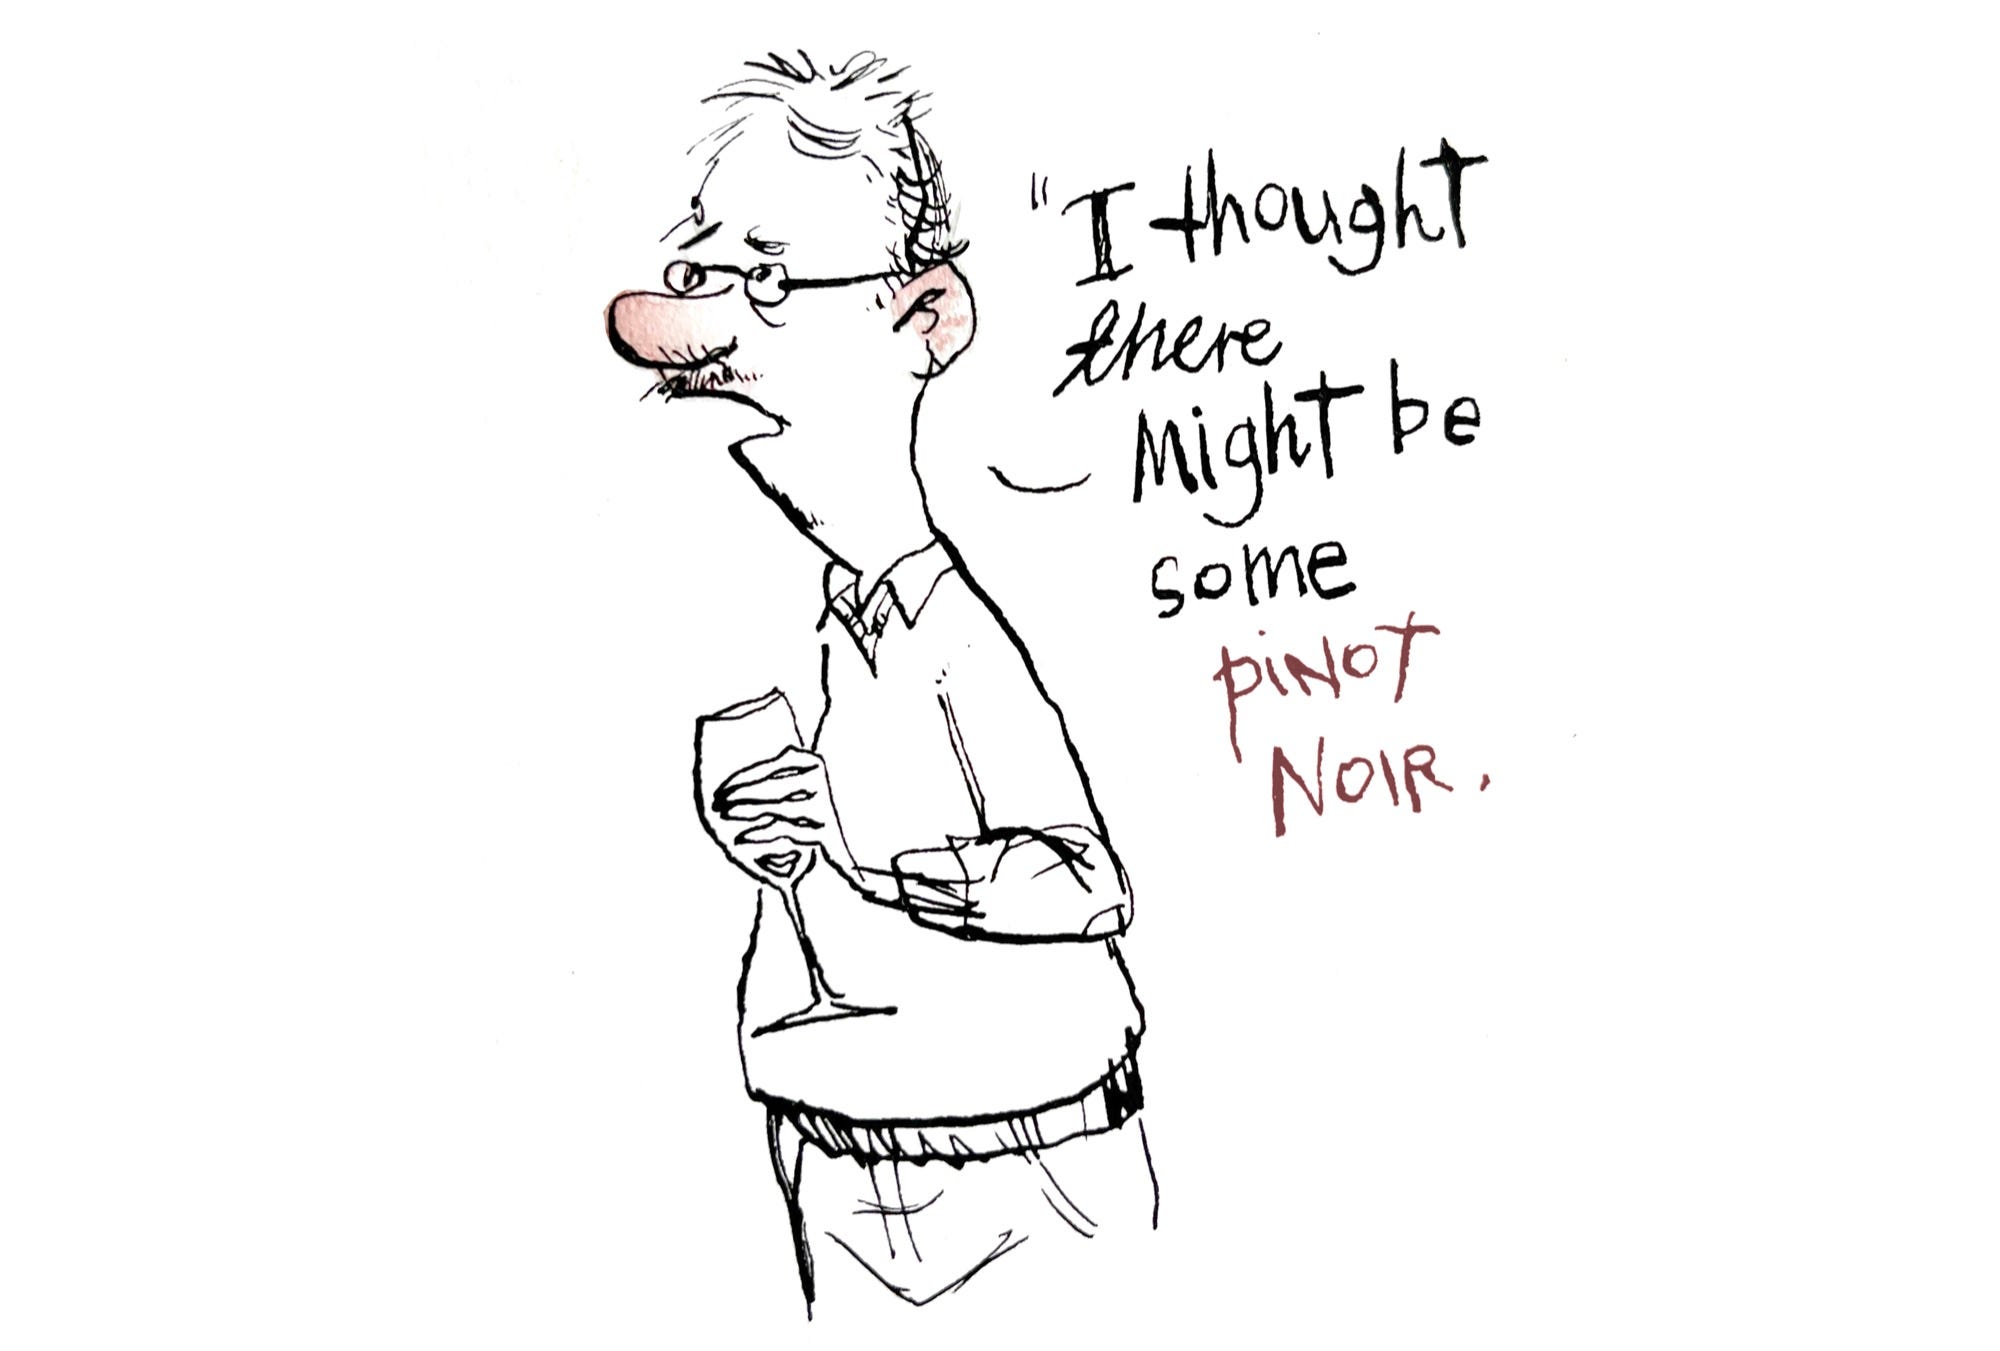 "I thought
there
Might be
some
PiNOT
NOIR.